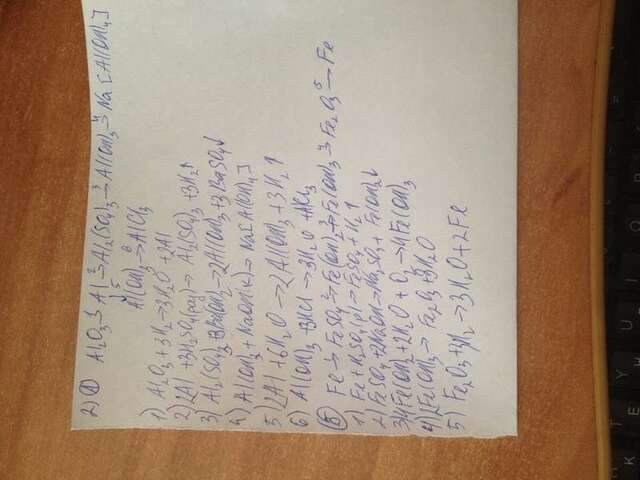 2) А Al2O3 →1 Al →2 Al2(SO4)3 →3 Al(OH)3 →4 Na[Al(OH)4]
↓5
Al(OH)3 →6 AlCl3
1) Al2O3 + 3H2 → 3H2O + 2Al
2) 2Al + 3H2SO4(р) → Al2(SO4)3 + 3H2↑
3) Al2(SO4)3 + 3Ba(OH)2 → 2Al(OH)3 + 3BaSO4↓
4) Al(OH)3 + NaOH(к) → Na[Al(OH)4]
5) 2Al + 6H2O → 2Al(OH)3 + 3H2↑
6) Al(OH)3 + 3HCl → 3H2O + AlCl3
Б Fe →1 FeSO4 →2 Fe(OH)2 →3 Fe(OH)3 →4 Fe2O3 →5 Fe
1) Fe + H2SO4(р) → FeSO4 + H2↑
2) FeSO4 + 2NaOH → Na2SO4 + Fe(OH)2↓
3) 4Fe(OH)2 + 2H2O + O2 → 4Fe(OH)3
4) 2Fe(OH)3 → Fe2O3 + 3H2O
5) Fe2O3 + 3H2 → 3H2O + 2Fe